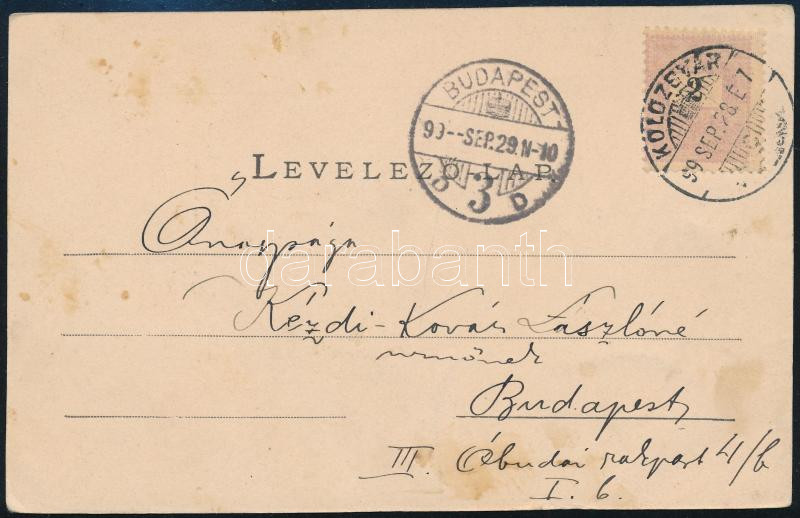 KOLOZSVÁR
99 SEP. 28. É 7
BUDAPEST
99--SEP.29.N-10
3 D.
LEVELEZŐ-LAP.
Ő nagysága
darabanth
Kézdi-Kovács Lászlóné
urnőnek
Budapest
III. Óbudai rakpart 4/b
I. 6.